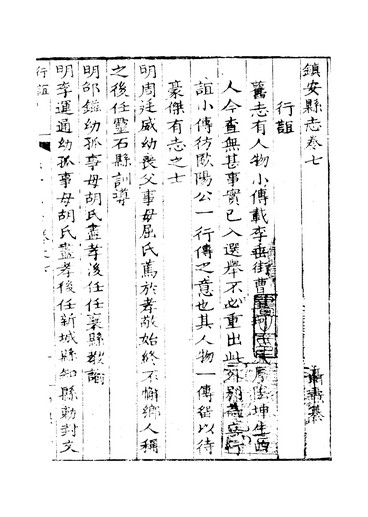 鎮安縣志卷七
行誼
舊志有人物小傳載李垂街曹
人今查無甚事實已入選舉不必重出此外別為
誼小傳彷歐陽公一行傳之意也其人物一傳留以待
豪傑有志之士
明周廷威幼喪父事母屈氏篤於孝敬始終不懈鄉人稱
之後任靈石縣訓導
明邰鎰幼孤事母胡氏盡孝後任任襄縣教諭
明李運通幼孤事母胡氏盡孝後任新城縣知縣勅封文
行誼